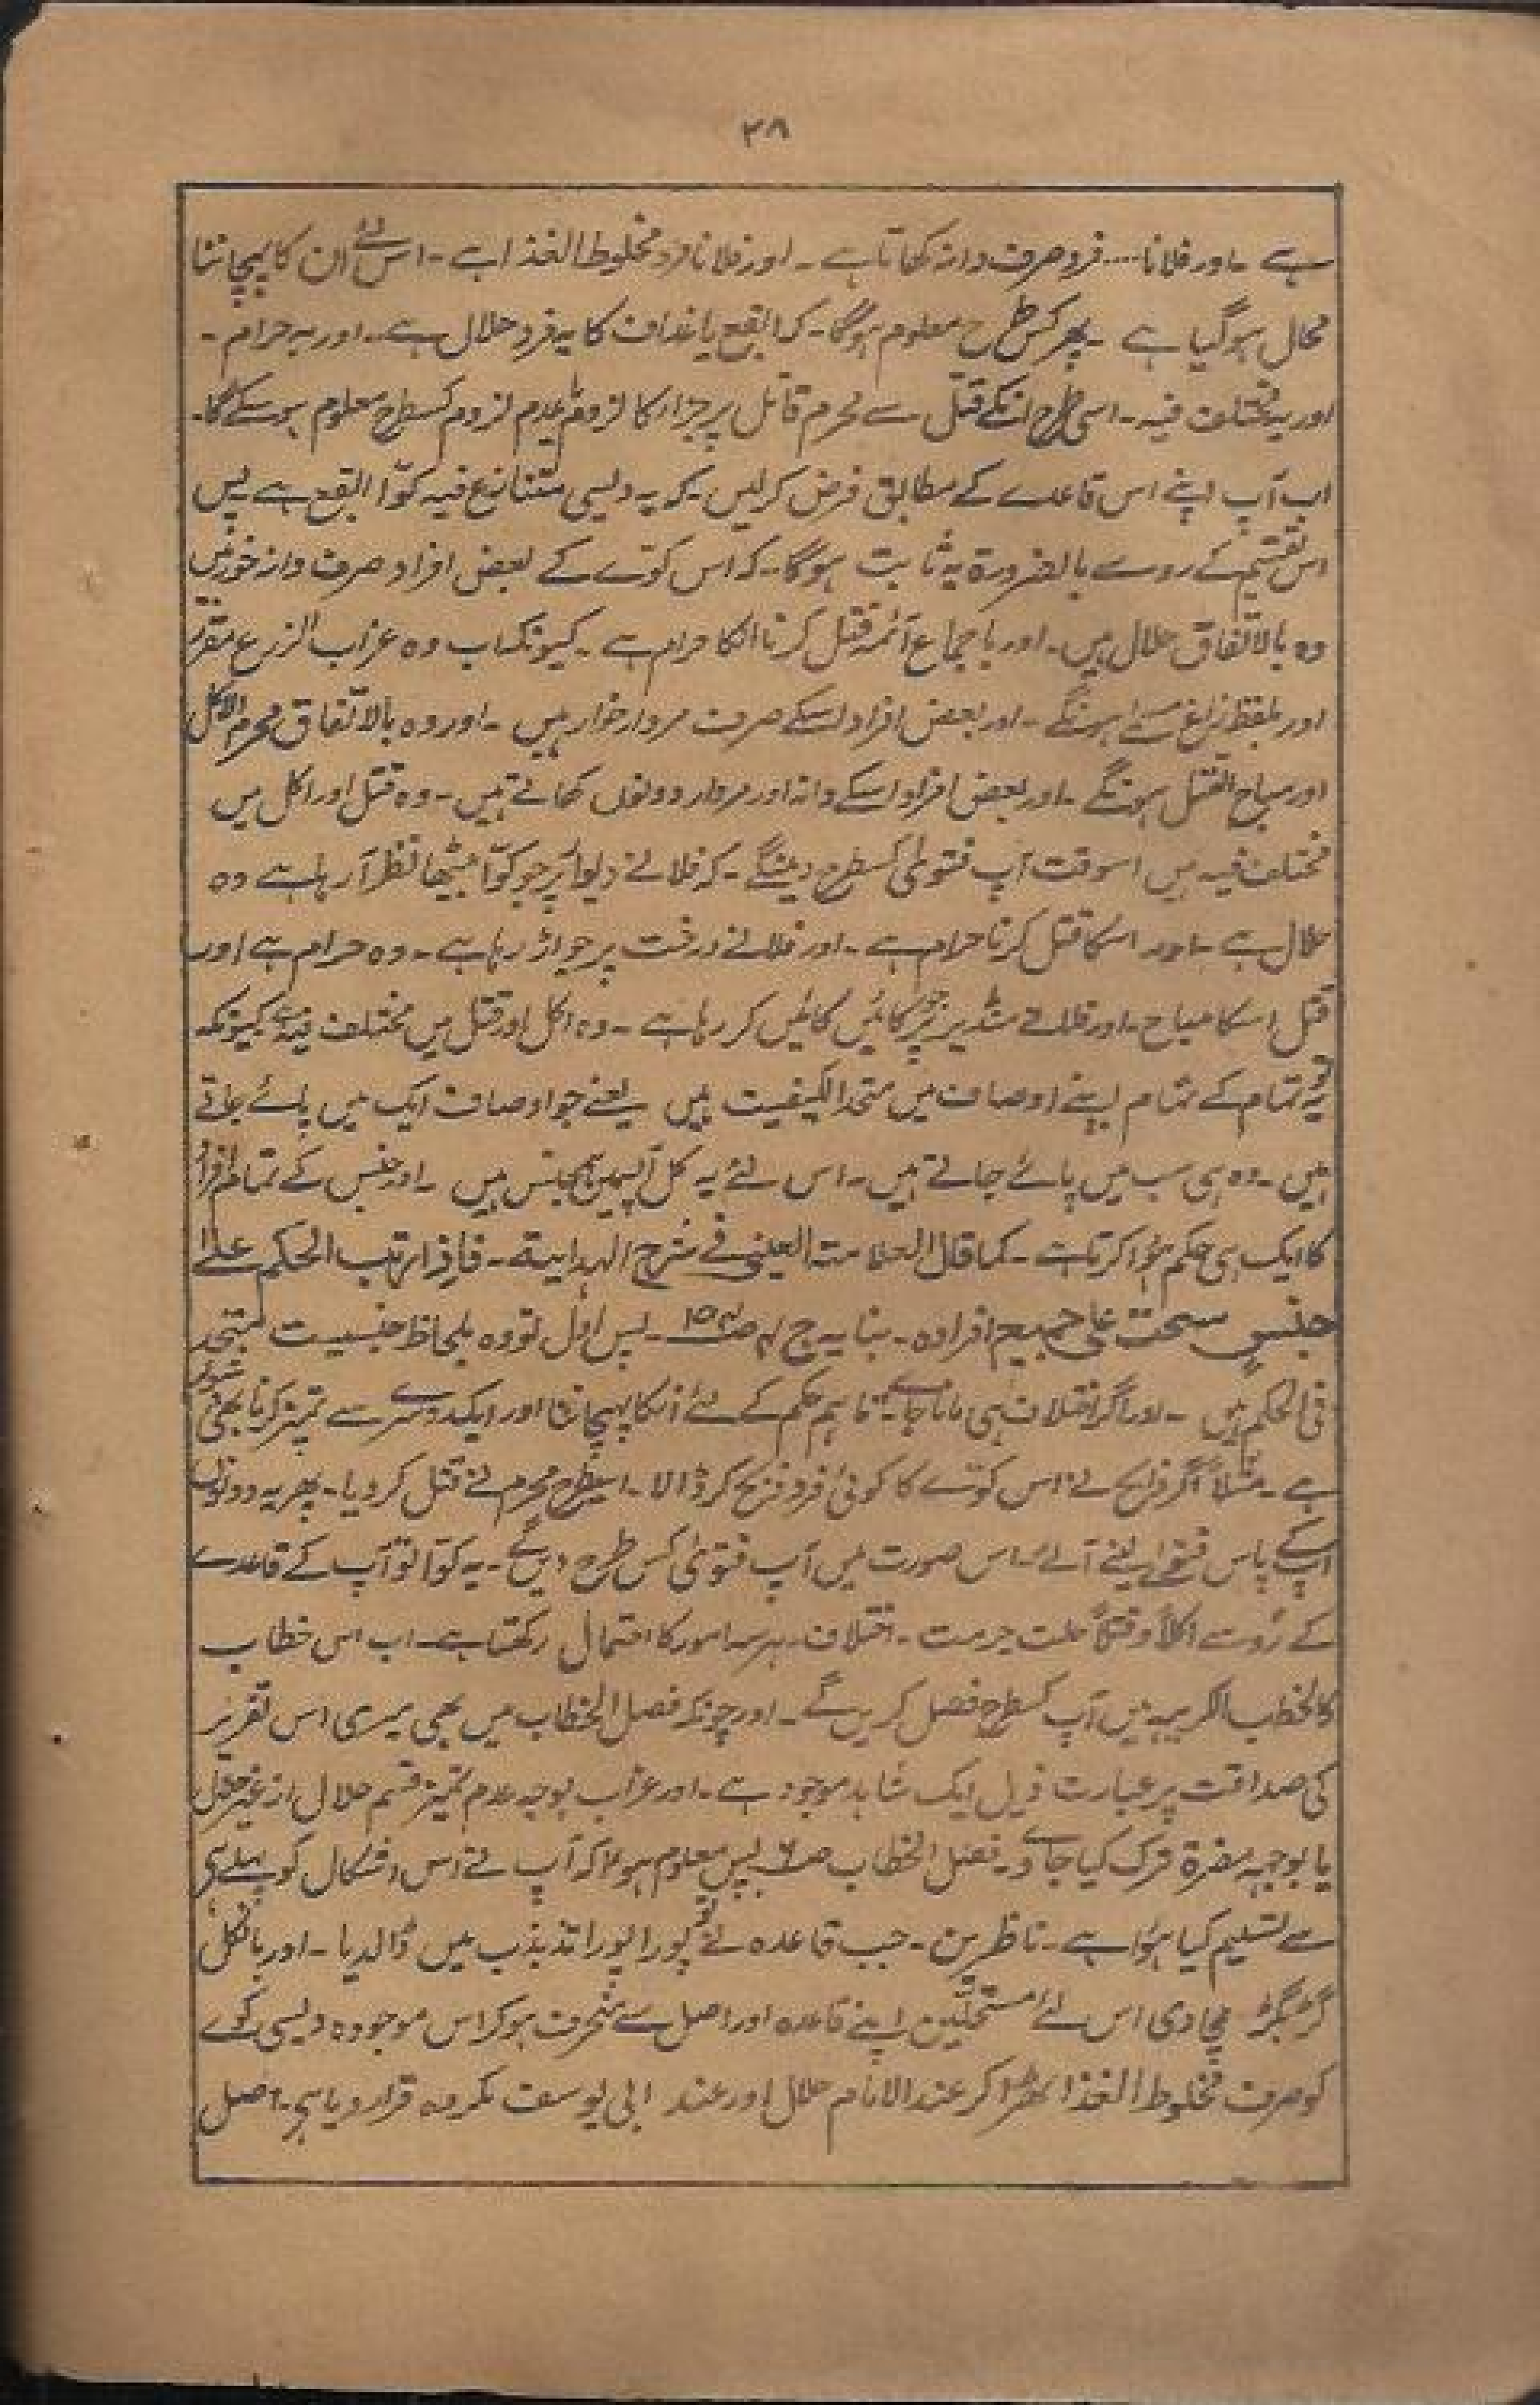 ۲۸
ہے ۔ اور فلانا..... فرد صرف دانہ کھاتا ہے ۔ اور فلانا فرد مخلوط الغذا ہے ۔ اس لئے ان کا پہچاننا
محال ہو گیا ہے ۔ پھر کس طرح معلوم ہوگا ۔ کہ ابقع یا غداف کا یہ فرد حلال ہے ۔ اور یہ حرام ۔
اور یہ مختلف فیہ ۔ اسی طرح انکے قتل سے محرم قاتل پر جزا کا لزوم عدم لزوم کسطرح معلوم ہو سکے گا ۔
اب آپ اپنے اس قاعدے کے مطابق فرض کر لیں ۔ کہ یہ دیسی متنازع فیہ کوّا ابقع ہے پس
اس تقسیم کے رو سے بالضرورۃ یہ ثابت ہوگا ۔ کہ اس کوّے کے بعض افراد صرف دانہ خور ہیں
وہ بالاتفاق حلال ہیں ۔ اور باجماع آئمہ قتل کرنا انکا حرام ہے ۔ کیونکہ اب وہ غراب الزرع مقرر
اور بلفظ زاغ ہونگے ۔ اور بعض افراد اسکے صرف مردار خوار ہیں ۔ اور وہ بالاتفاق محرم الاکل
اور مباح القتل ہونگے ۔ اور بعض افراد اسکے دانہ اور مردار دونوں کھاتے ہیں ۔ وہ قتل اور اکل میں
مختلف فیہ ہیں اسوقت آپ فتویٰ کسطرح دینگے ۔ کہ فلانے دیوار پر جو کوّا بیٹھا نظر آ رہا ہے وہ
حلال ہے ۔ اور اسکا قتل کرنا حرام ہے ۔ اور فلانے درخت پر جو اڑ رہا ہے ۔ وہ حرام ہے اور
قتل اسکا مباح ۔ اور فلانے منڈیر پر جو کائیں کائیں کر رہا ہے ۔ وہ اکل اور قتل میں مختلف فیہ ہے کیونکہ
یہ تو تمام کے تمام اپنے اوصاف میں متحد الکیفیت ہیں یعنے جو اوصاف ایک میں پائے جاتے
ہیں ۔ وہ ہی سب میں پائے جاتے ہیں ۔ اس لئے یہ کل آپسمیں ہمجنس ہیں ۔ اور جنس کے تمام افراد
کا ایک ہی حکم ہؤا کرتا ہے ۔ کما قال العلامۃ العینی فے شرح الہدایۃ ۔ فاذا ترتب الحکم علے
جنسٍ سحبت علی جمیع افرادہ ۔ بنایہ ج ۔ پس اوّل تو وہ بلحاظ جنسیت متحد
فی الحکم ہیں ۔ اور اگر اختلاف ہی مانا جاے تاہم حکم کے لئے انکا پہچاننا اور ایک دوسرے سے تمیز کرنا بھی دشوار
ہے ۔ مثلاً اگر ذابح نے اس کوّے کا کوئی فرد ذبح کر ڈالا ۔ اسیطرح محرم نے قتل کر دیا ۔ پھر یہ دونوں
آپکے پاس فتوے لینے آئے ۔ اس صورت میں آپ فتویٰ کس طرح دیں گے ۔ یہ کوّا تو آپ کے قاعدے
کے رُو سے اکلاً و قتلاً حلت حرمت ۔ اختلاف ۔ ہر سہ امور کا احتمال رکھتا ہے ۔ اب اس خطاب
کالخطب الکریہہ میں آپ کسطرح فصل کریں گے ۔ اور چونکہ فصل الخطاب میں بھی میری اس تقریر
کی صداقت پر عبارت ذیل ایک شاہد موجود ہے ۔ اور غراب بوجہ عدم تمیز قسم حلال از غیر حلال
یا بوجہ مضرۃ ترک کیا جاوے ۔ فصل الخطاب ص۔ پس معلوم ہوا کہ آپ نے اس اشکال کو پہلے ہی
سے تسلیم کیا ہؤا ہے ۔ ناظرین ۔ جب قاعدہ نے تو پورا پورا تذبذب میں ڈالدیا ۔ اور بالکل
گڑبڑ مچا دی اس لئے مستحلین اپنے قاعدہ اور اصل سے منحرف ہو کر اس موجودہ دیسی کوّے
کو صرف مخلوط الغذا ٹھہرا کر عند الامام حلال اور عند ابی یوسف مکروہ قرار دیا ہے ۔ اصل